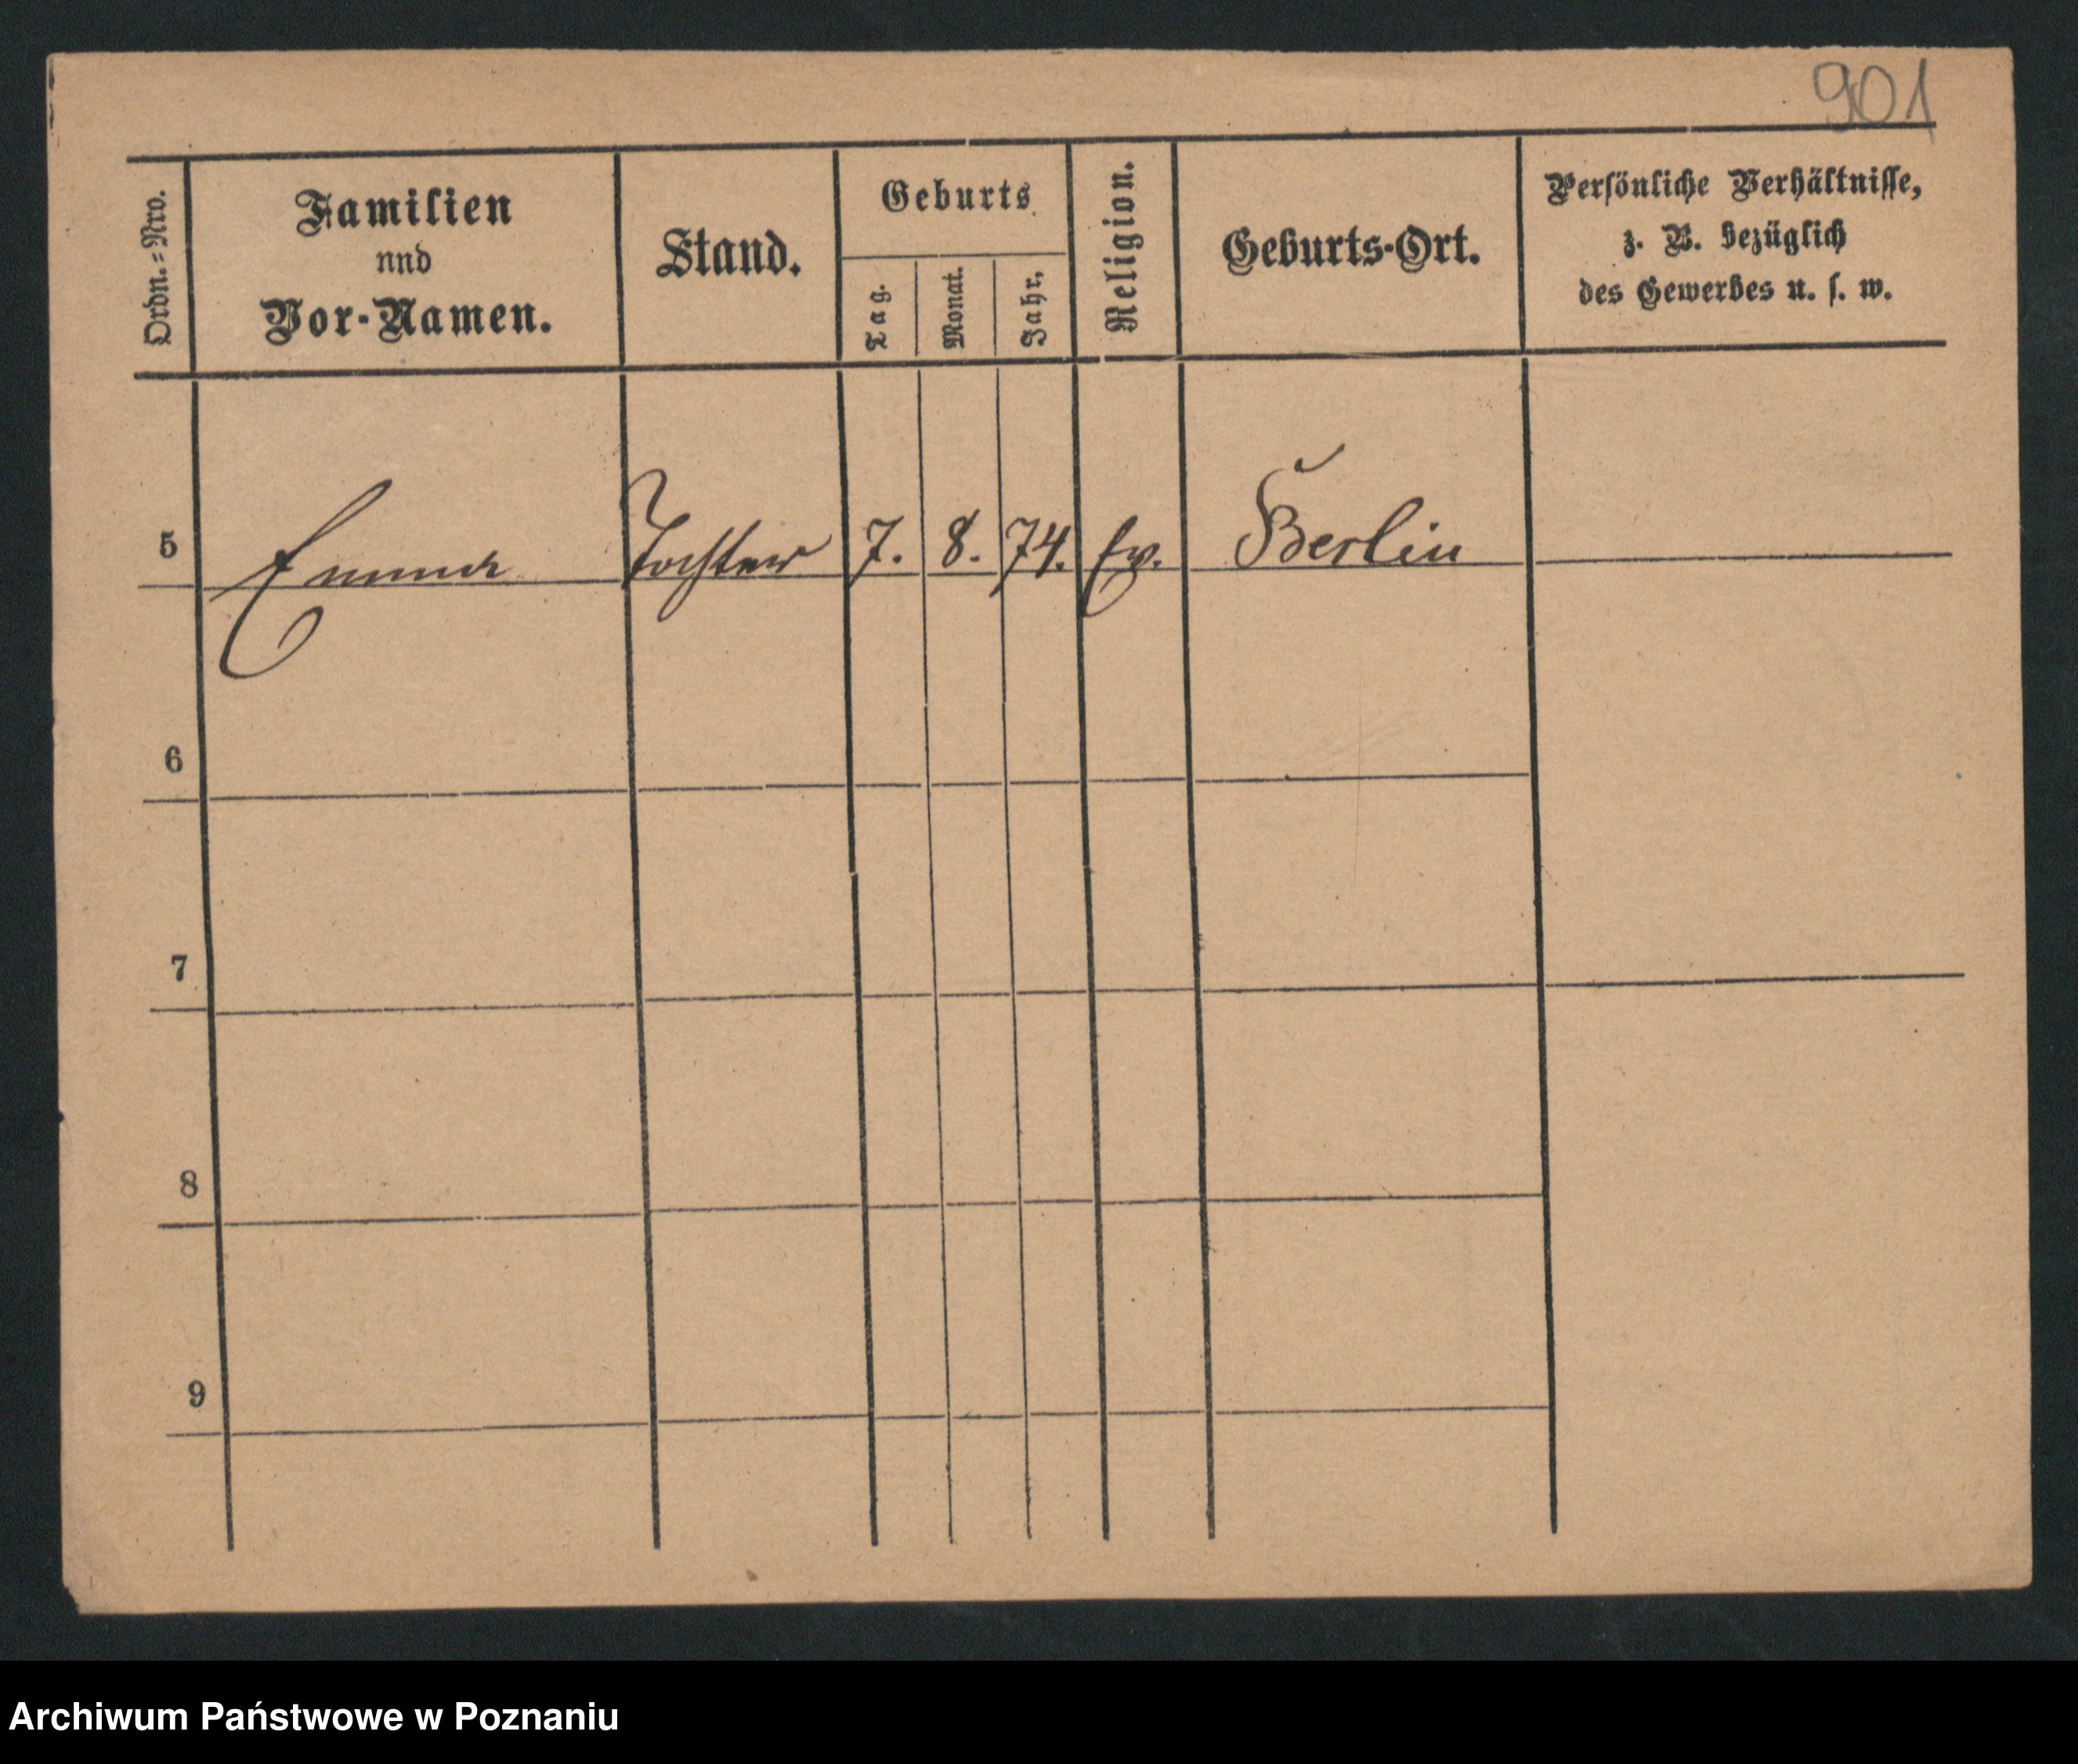 901
Ordn.=Nro.
Familien
und
Vor-Namen.
Stand.
Geburts
Tag.
Monat.
Jahr.
Religion.
Geburts-Ort.
Persönliche Verhältnisse,
z. B. bezüglich
des Gewerbes u. s. w.
5 Emma Tochter 7. 8. 74. Ev. Berlin
6
7
8
9
Archiwum Państwowe w Poznaniu